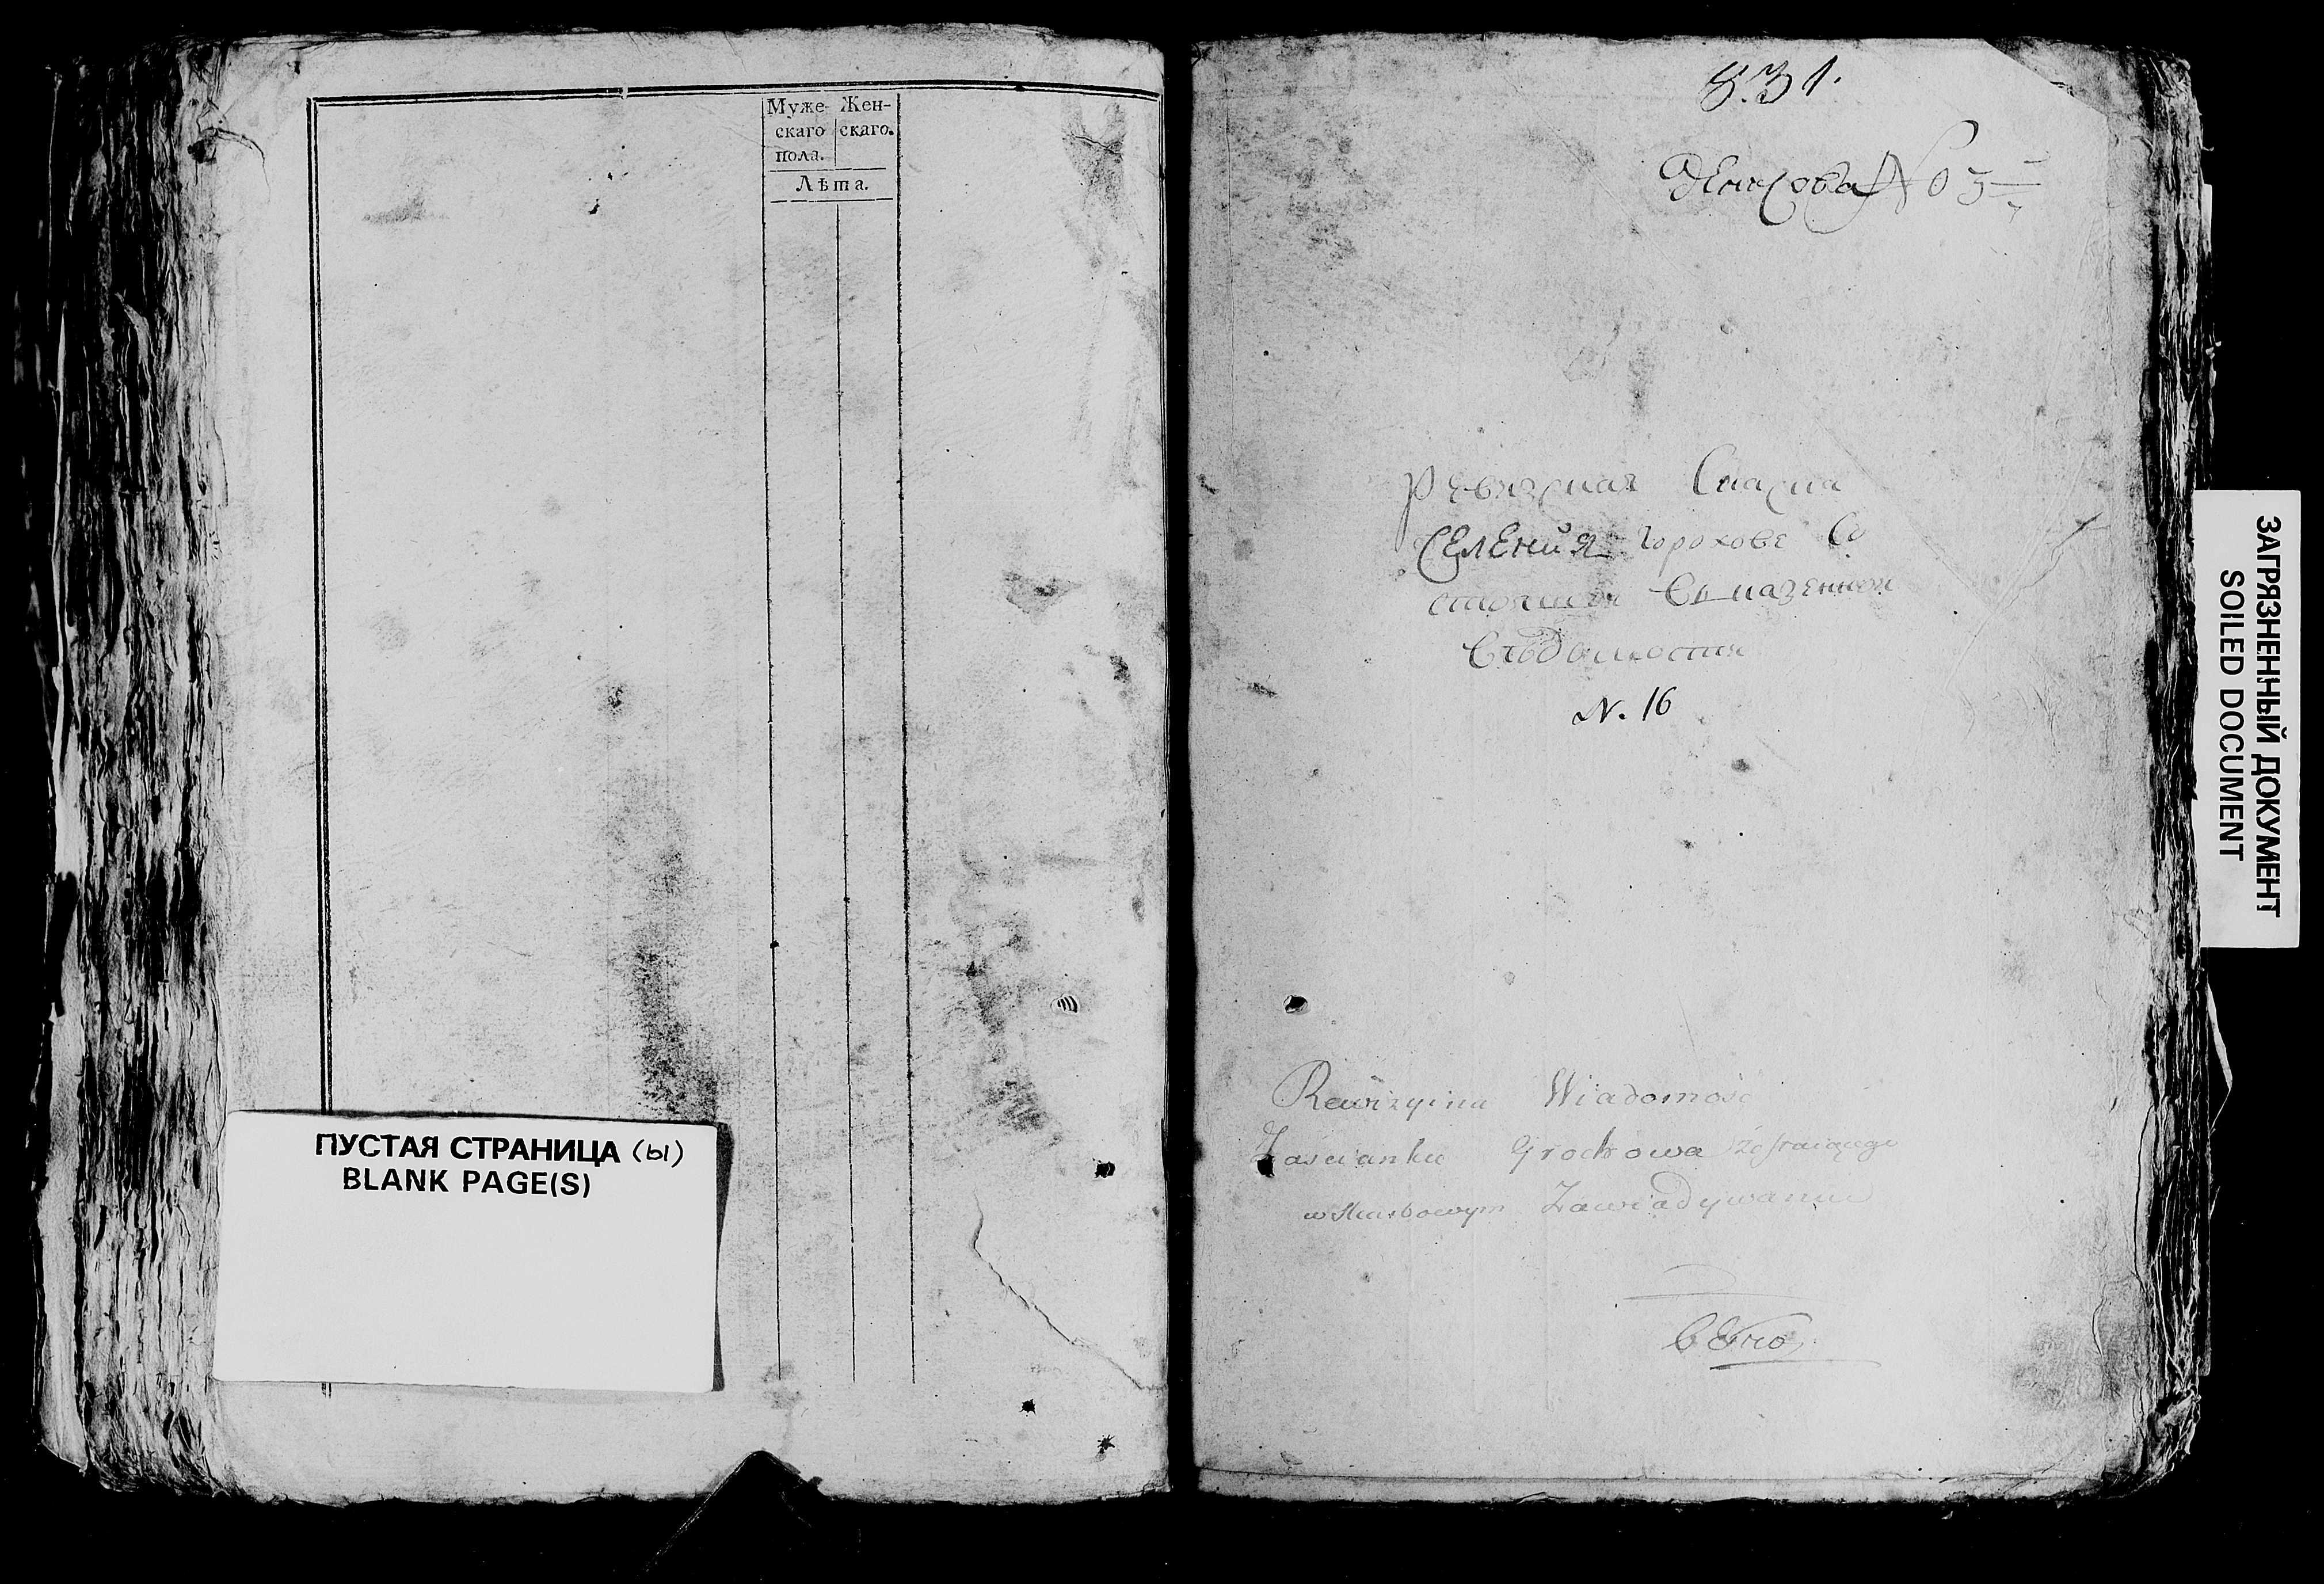 Муже- Жен-
скаго скаго.
пола.
Лѣта.
ПУСТАЯ СТРАНИЦА (ы)
BLANK PAGE(S)
831.
No
Ревизская Сказка
Селения Горохове Со
стоящей Въ казенной
Вѣдомости
N. 16
Rewizyina Wiadomość
Zaścianku Grochowa zostaiącego
w Skarbowym Zawiadywaniu
ЗАГРЯЗНЕННЫЙ ДОКУМЕНТ
SOILED DOCUMENT